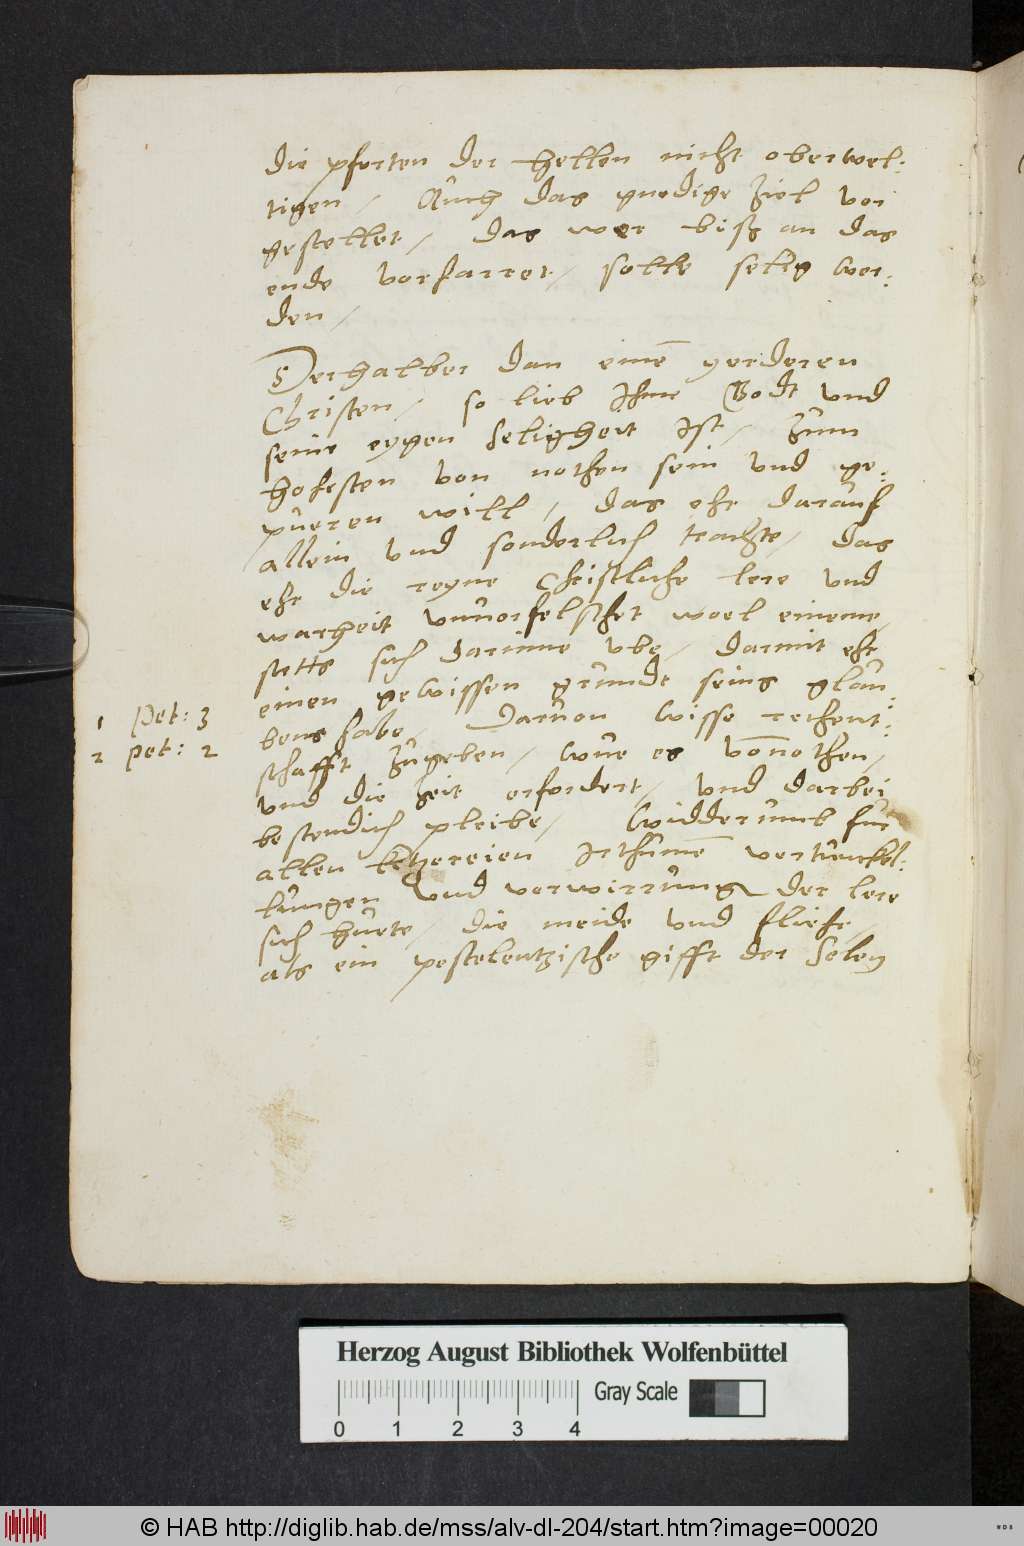 die pforten der hellen nicht oberwel:
tigen / Auch das gnedige Ziel vor
gestellet / das wer biß an das
ende vorharret / solle selig wer:
den /
Derhalber dan einē yederen
Christen / so lieb Ihme Godt vnd
seine eygen Seligheit Ist / Zum
hohesten von nothen sein vnd ge:
pueren will / das ehr darauf
allein vnd sonderlich trachte / das
ehr die reyne Christliche lere vnd
warheit vnuorfelschet woel eineme /
stetts sich darinne vbe / darmit ehr
einen gewissen grundt seins glau:
bens habe / Daruon wisse rechent:
schafft Zugeben / wue es vōnothen /
vnd die Zeit erfordert / vnd darbei
bestendich pleibe / Widderumb fur
allen ketzereien Irthumē vertunckel:
lungen vnd vorwirrung der lere
sich huete / die meide vnd fliehe /
als ein pestelentzische gifft der Selen
1 Pet: 3
2 pet: 2
Herzog August Bibliothek Wolfenbüttel
0 1 2 3 4
Gray Scale
© HAB http://diglib.hab.de/mss/alv-dl-204/start.htm?image=00020